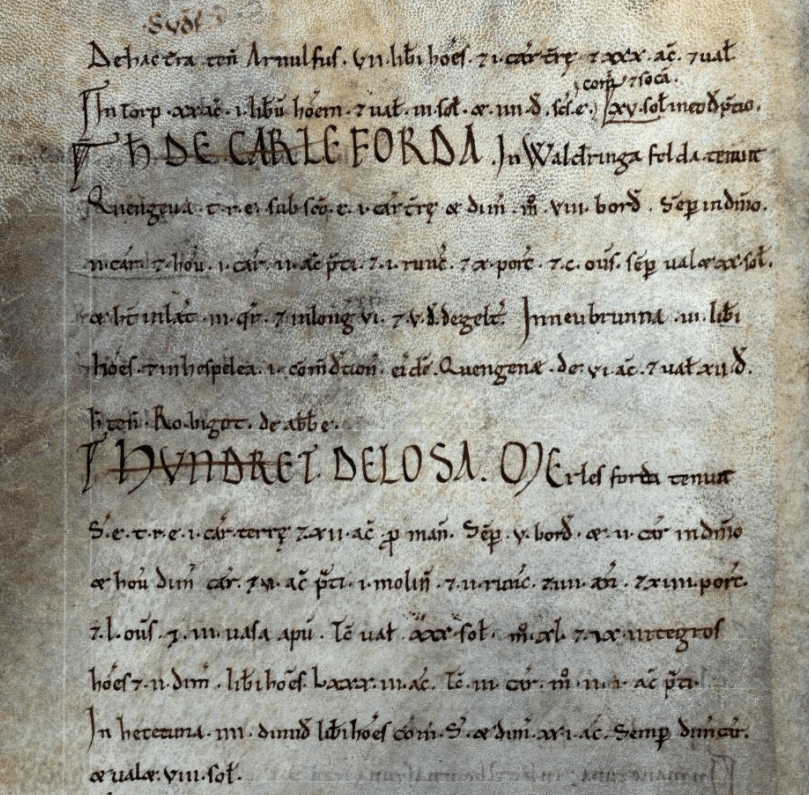 Sudf
De hac t̄ra teñ Arnulfus. vii. lib̄i hōes. ⁊ i. car̄ t̄rę ⁊ xxx. ac̄. ⁊ ual̄
com̄ ⁊ socā.
In torp. xx ac̄. i. lib̄ū hōem. ⁊ ual̄. iii. sol̄. & iiii. d̄. sc̄s. e. xv. sol̄ in eod̄ p̄tio.
H̄ DE CARLEFORDA. In Waldringa felda tenuit
Quengeua. t. r. e. sub sc̄a. e. i. car̄ t̄rę & dim̄. m̊. viii. bord̄. Sēp in dm̄io.
ii. car̄. ⁊ hōu. i. car̄. ii. ac̄ p̄ti. ⁊ i. runc̄. ⁊ x. porc̄. ⁊ c. oūs. sēp ual& xx. sol̄.
& ht̄ in lāt. iii. qr̄. ⁊ in lonḡ vi. ⁊ v. d̄. de gelt̄. In neubrunna. iii. lib̄i
hōes. ⁊ in hespelea. i. com̄d̄tion̄. eid̄ē. Quengenæ. de. vi. ac̄. ⁊ ual̄ xii. d̄.
h̄ teñ. Ro. bigot. de abb̄e.
HVNDRET DELOSA. MErles forda tenuit
S. e. t. r. e. i. car̄ terrę ⁊ xii. ac̄ ꝓ mañ. Sēp. v. bord̄. & ii. car̄ in dm̄io
& hōu dim̄ car̄. ⁊ vi. ac̄ p̄ti. i. moliñ. ⁊ ii. runc̄. ⁊ iiii. añ. ⁊ xiiii. porc̄.
⁊ l. oūs. ⁊. iii. uasa apū. Tc̄ ual̄ xxx. sol̄. m̊. xl. ⁊ ix. integros
hōes ⁊ ii. dim̄. lib̄i hōes. lxxx. iii. ac̄. Tc̄. iii. car̄. m̊. ii. i. ac̄ p̄ti.
In hetetuna. iiii. dimid̄ lib̄i hōes com̄. S. & dim̄. xxi. ac̄. Semp dim̄ car̄.
& ual&. viii. sol̄.